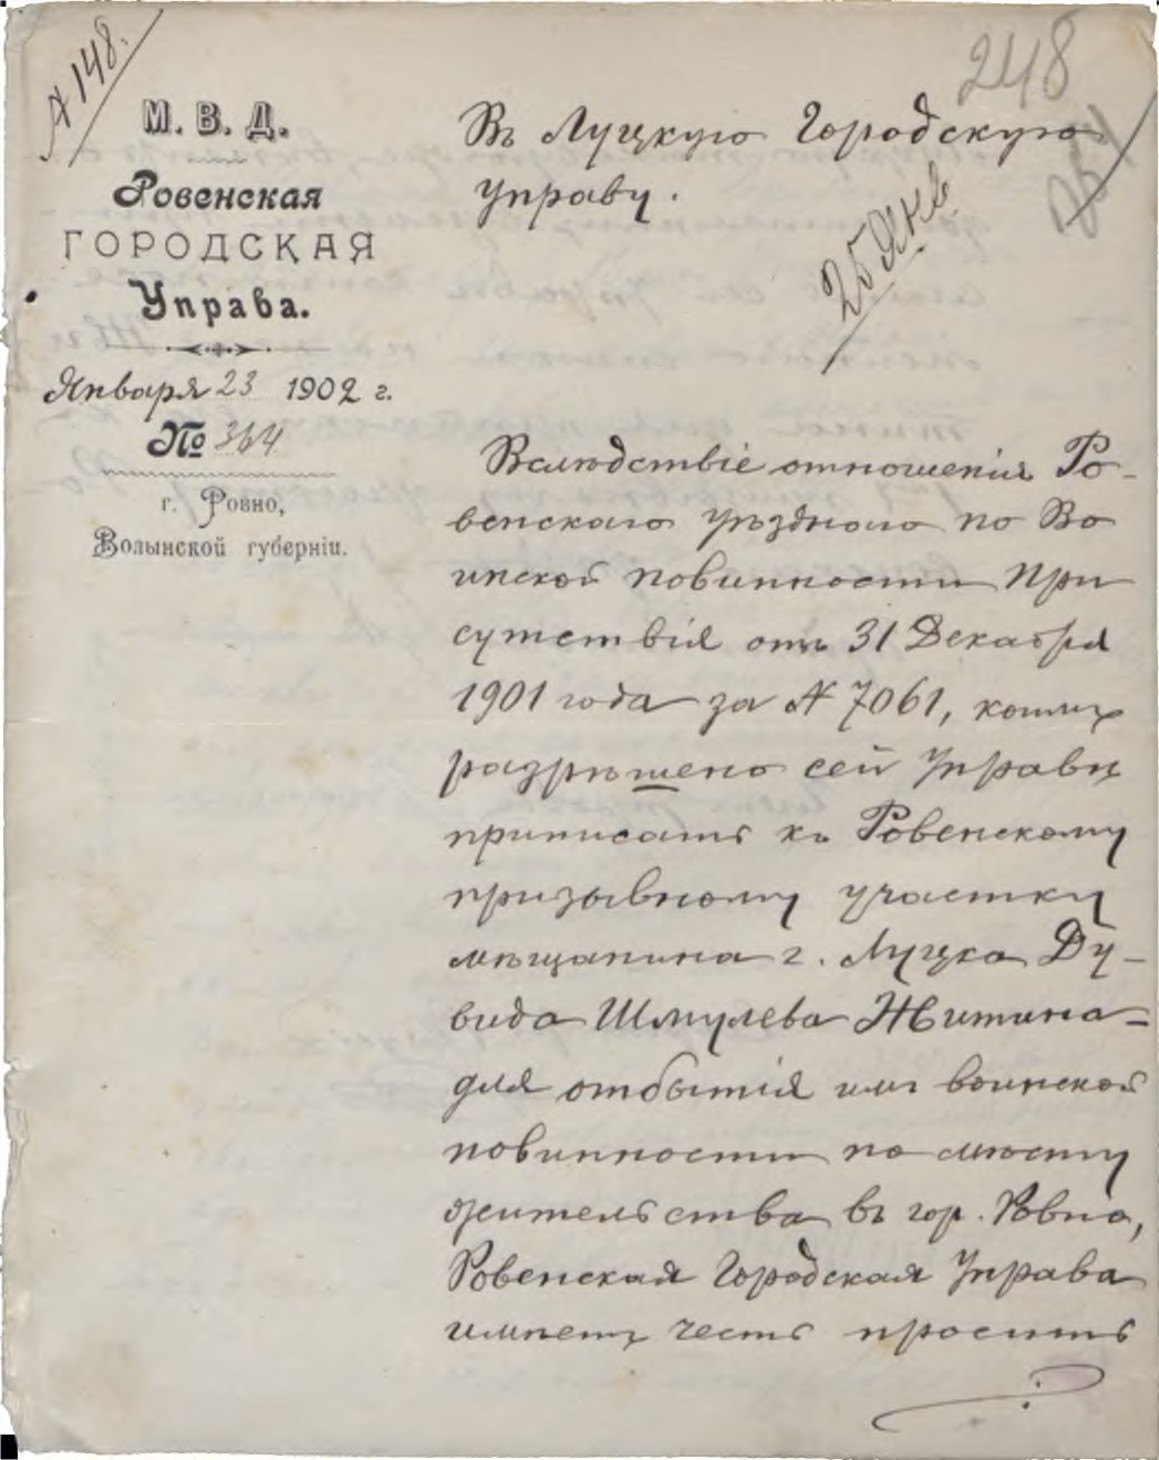 № 148.
248
М. В. Д.
Ровенская
ГОРОДСКАЯ
Управа.
Января 23 1902 г.
№ 364
г. Ровно,
Волынской губерніи.
Въ Луцкую Городскую
Управу.
25 Янв
Вслѣдствіе отношенія Ро-
венскаго уѣзднаго по Во
инской повинности При
сутствія отъ 31 Декабря
1901 года за № 7061, коимъ
разрѣшено сей Управѣ
приписать къ Ровенскому
призывному участку
мѣщанина г. Луцка Ду-
вида Шмулева Житина-
для отбытія имъ воинской
повинности по мѣсту
жительства въ гор. Ровно,
Ровенская Городская Управа
имѣетъ честь просить